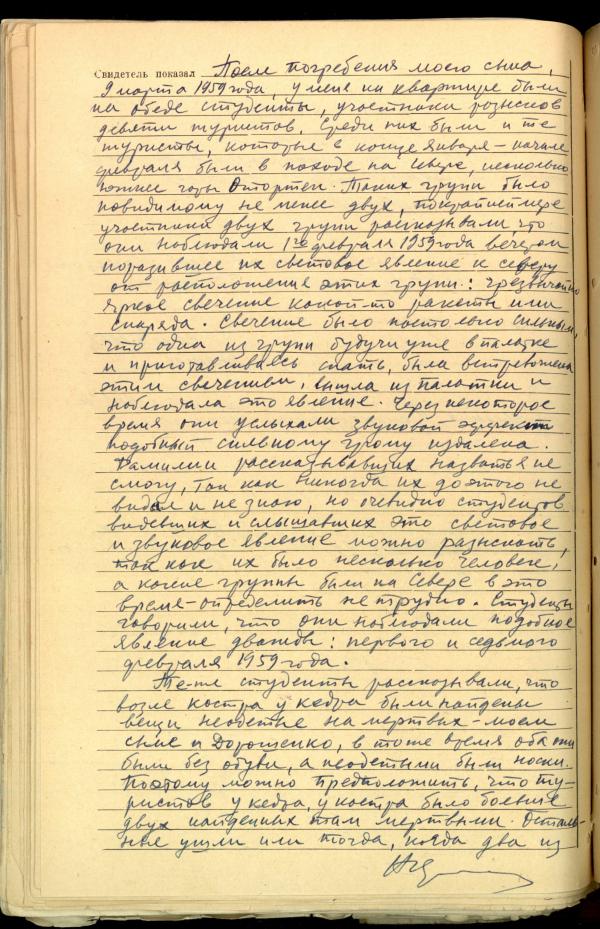 Свидетель показал После погребения моего сына,
9 марта 1959 года, у меня на квартире были
на обеде студенты, участники розысков
девяти туристов. Среди них были и те
туристы, которые в конце января – начале
февраля были в походе на Севере, несколько
южнее горы Отортен. Таких групп было
повидимому не менее двух, по крайней мере
участники двух групп рассказывали, что
они наблюдали 1го февраля 1959 года вечером
поразившее их световое явление к северу
от расположения этих групп: чрезвычайно
яркое свечение какой-то ракеты или
снаряда. Свечение было настолько сильным,
что одна из групп будучи уже в палатке
и приготавливаясь спать, была встревожена
этим свечением, вышла из палатки и
наблюдала это явление. Через некоторое
время они услыхали звуковой эффект
подобный сильному грому издалека.
Фамилии рассказывавших назвать я не
смогу, так как никогда их до этого не
видал и не знаю, но очевидно студентов
видевших и слышавших это световое
и звуковое явление можно разыскать,
так как их было несколько человек,
а какие группы были на Севере в это
время – определить не трудно. Студенты
говорили, что они наблюдали подобное
явление дважды: первого и седьмого
февраля 1959 года.
Те-же студенты рассказывали, что
возле костра у кедра были найдены
вещи неодетые на мертвых – моем
сыне и Дорошенко, в то же время оба они
были без обуви, а неодетыми были носки.
Поэтому можно предположить, что ту-
ристов у кедра, у костра было больше
двух найденных там мертвыми. Осталь-
ные ушли или тогда, когда два из